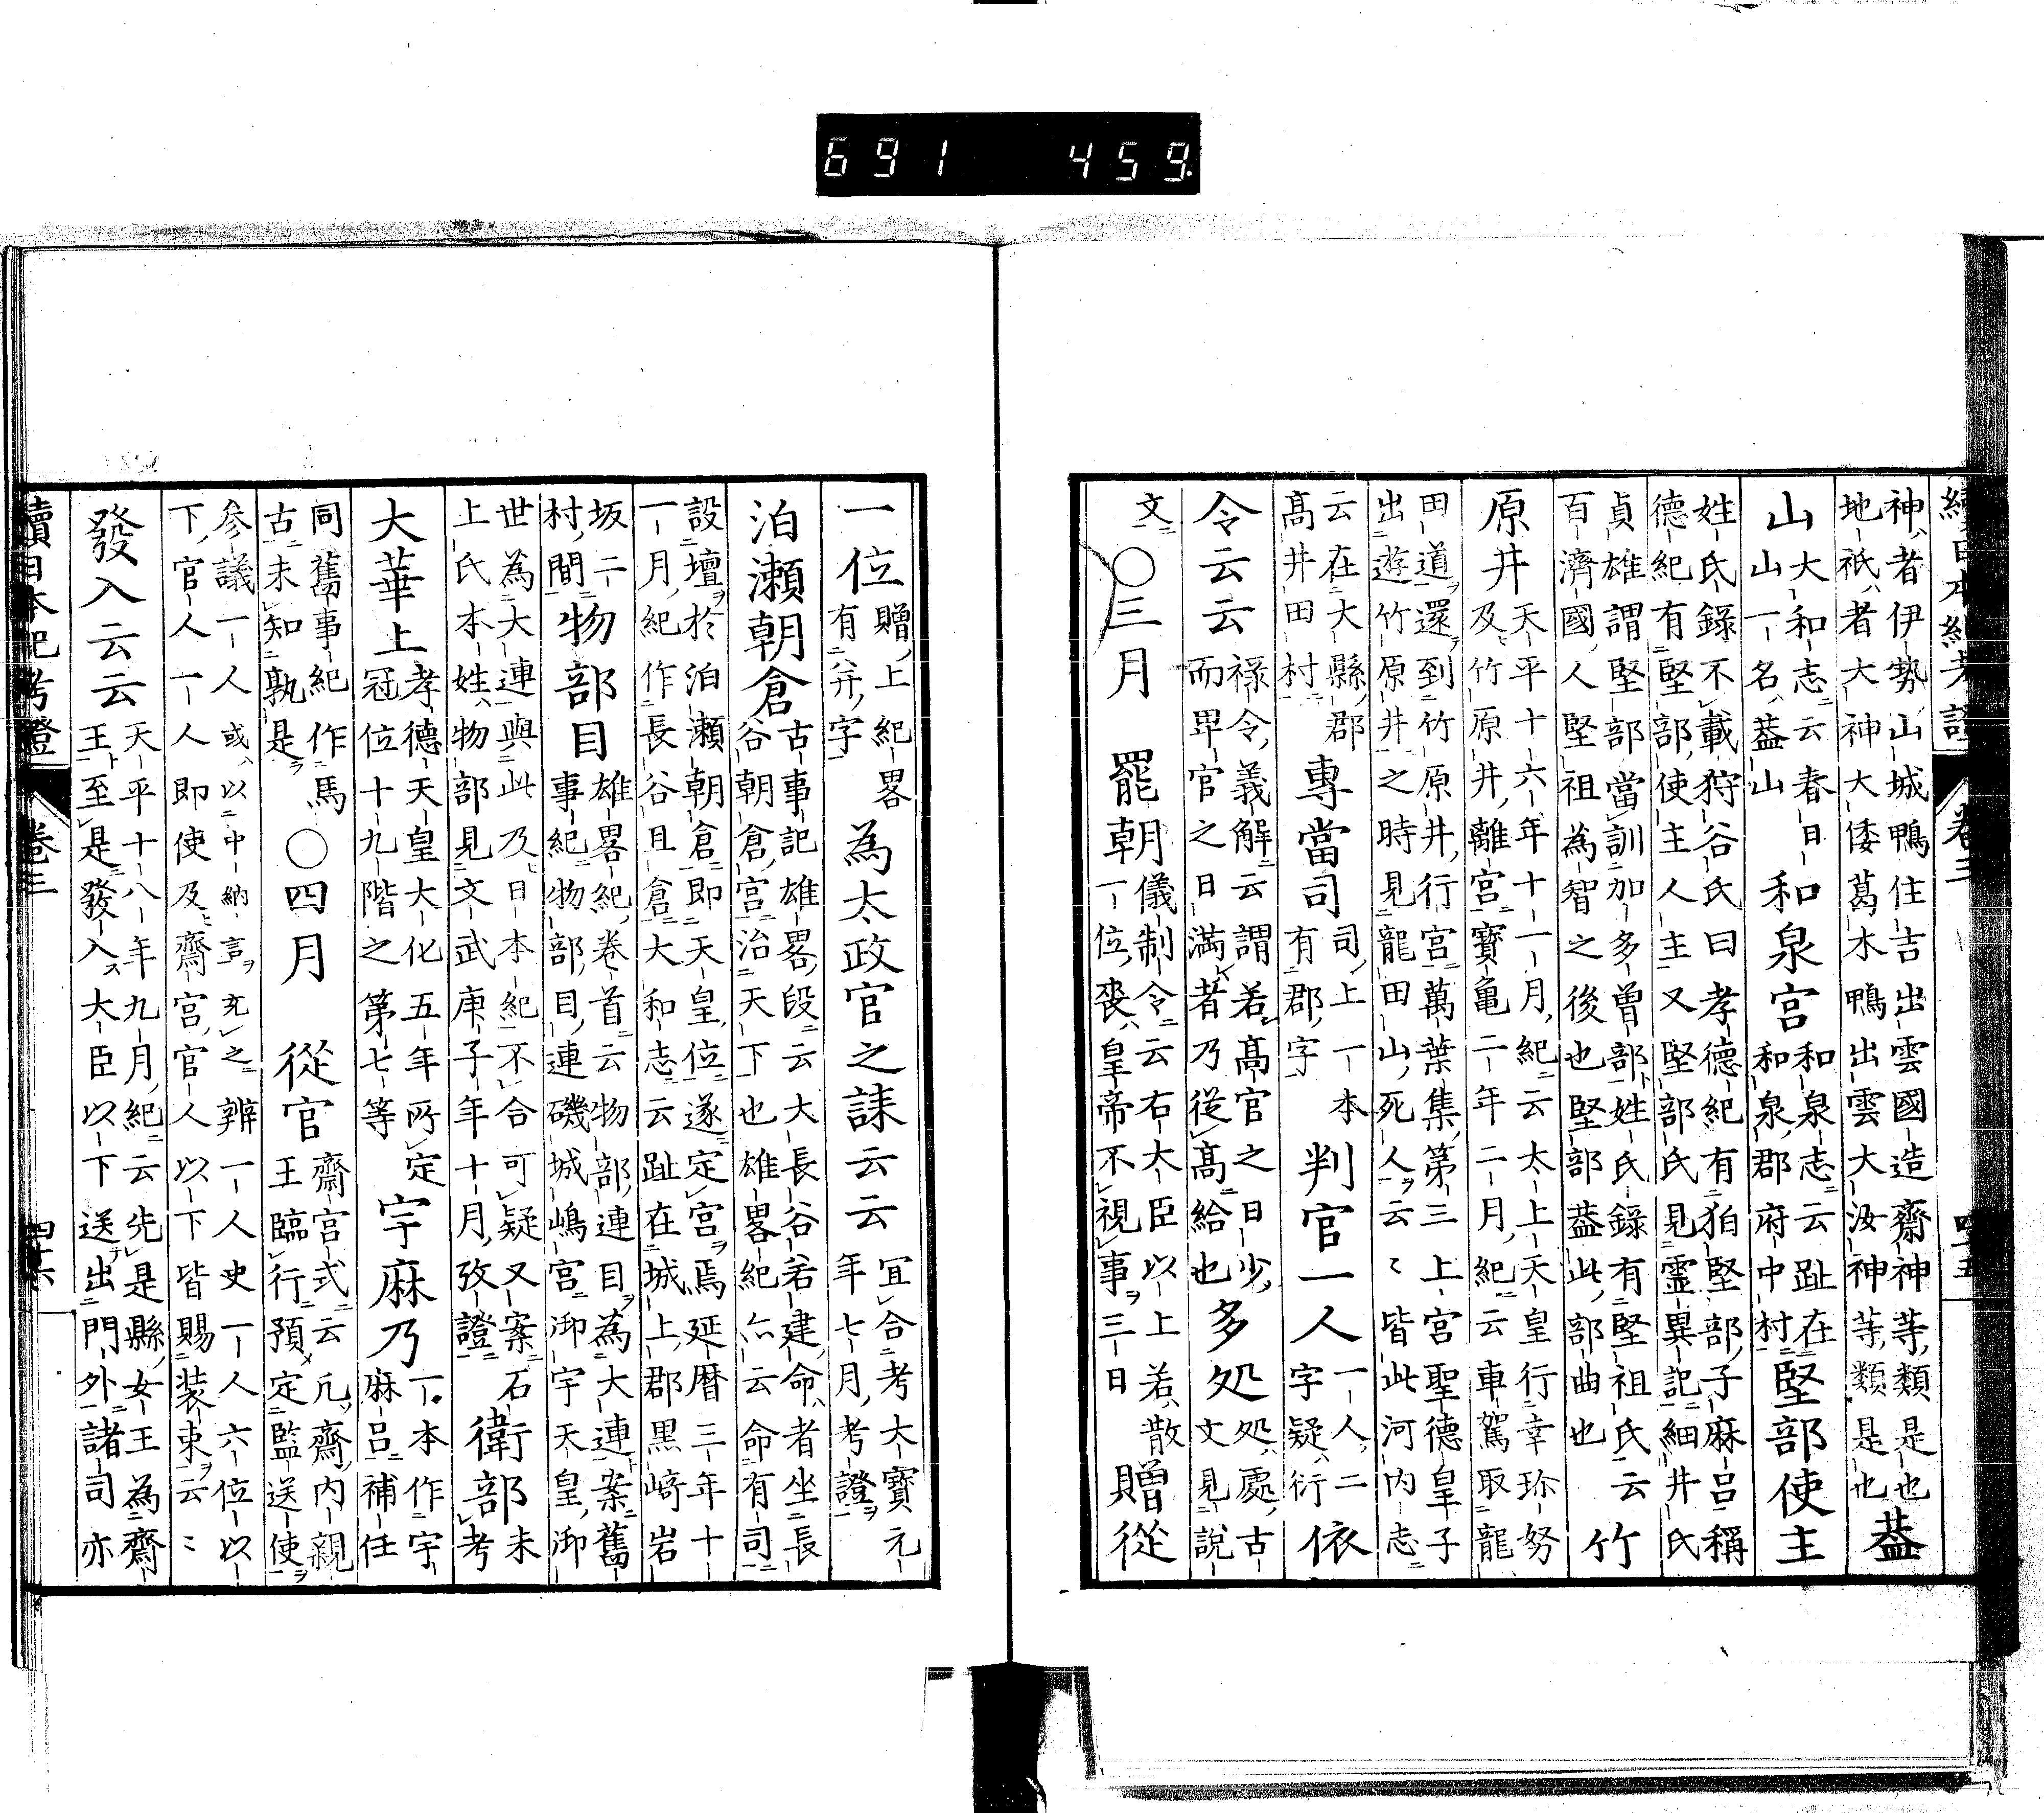 691 459
續日本紀考證 卷三 四十五
神者伊勢山城鴨住吉出雲國造齋神等類是也
地祇者大神大倭葛木鴨出雲大汝神等類是也 葢
山 大和志云春日
山一名葢山 和泉宮 和泉志云趾在
和泉郡府中村 堅部使主
姓氏錄不載狩谷氏曰孝德紀有狛堅部子麻呂稱
德紀有堅部使主人主又堅部氏見靈異記細井氏
貞雄謂堅部當訓加多曾部姓氏錄有堅祖氏云
百濟國人堅祖為智之後也堅部葢此部曲也 竹
原井 天平十六年十一月紀云太上天皇行幸珍努
及竹原井離宮寶亀二年二月紀云車駕取龍
田道還到竹原井行宮萬葉集第三上宮聖德皇子
出遊竹原井之時見龍田山死人云〻皆此河内志
云在大縣郡
高井田村 專當司 司上一本
有郡字 判官一人 一人二
字疑衍 依
令云云 祿令義解云謂若高官之日少
而畢官之日滿者乃從高給也 多処 処處古
文見說
文 ○三月 罷朝 儀制令云右大臣以上若散
一位喪皇帝不視事三日 贈從
一位 贈上紀畧
有并字 為太政官之誄云云 冝合考大寶元
年七月考證
泊瀨朝倉 古事記雄畧段云大長谷若建命者坐長
谷朝倉宮治天下也雄畧紀亦云命有司
設壇於泊瀨朝倉即天皇位遂定宮焉延暦三年十
一月紀作長谷旦倉大和志云趾在城上郡黒﨑岩
坂二
村間 物部目 雄畧紀卷首云物部連目為大連案舊
事紀物部目連磯城嶋宮御宇天皇御
世為大連與此乃日本紀不合可疑又案石
上氏本姓物部見文武庚子年十月攷證 衛部 未
考
大華上 孝德天皇大化五年所定
冠位十九階之第七等 宇麻乃 一本作宇
麻呂補任
同舊事紀作馬
古未知孰是 ○四月 從官 齋宮式云凡齋内親
王臨行預定監送使
參議一人或以中納言充之辨一人史一人六位以
下官人一人即使及齋宮官人以下皆賜装束云〻
發入云云 天平十八年九月紀云先是縣女王為齋
王至是發入大臣以下送出門外諸司亦
續日本紀考證 卷三 四十六